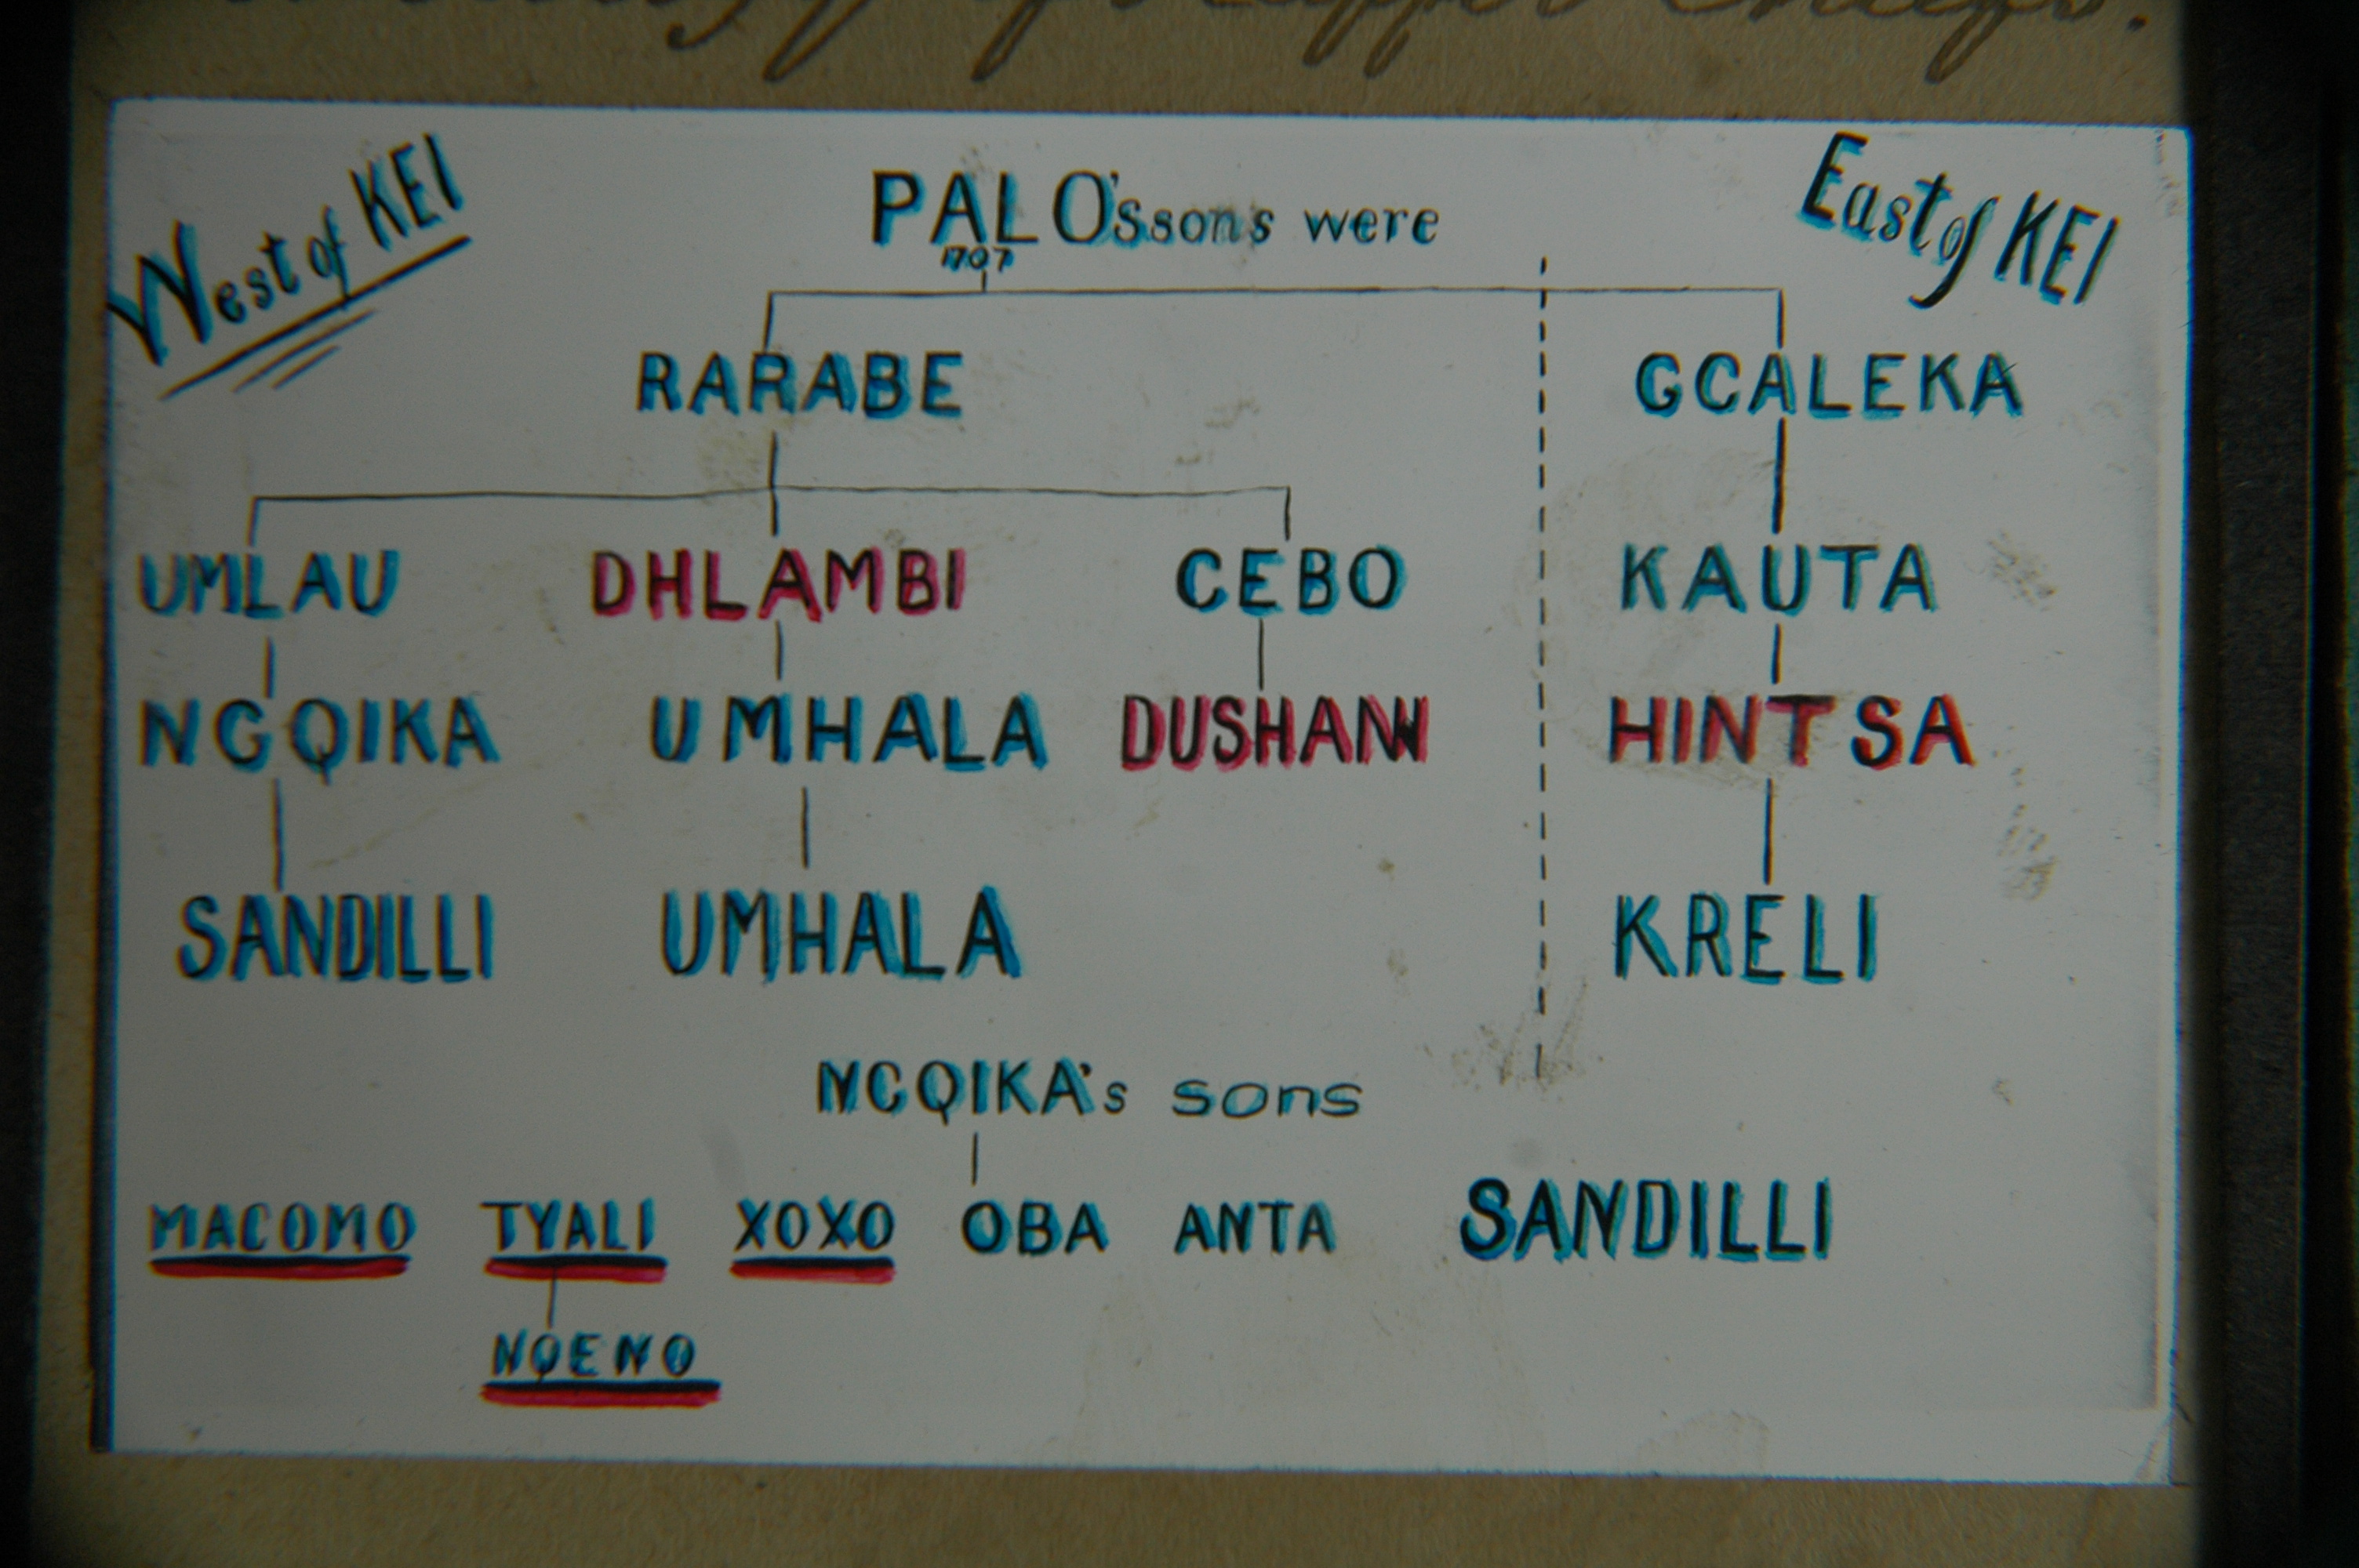 of Kaffir Chiefs.
West of KEI
PALO's sons were
East of KEI
1707
RARABE GCALEKA
UMLAU DHLAMBI CEBO KAUTA
NGQIKA UMHALA DUSHANN HINTSA
SANDILLI UMHALA KRELI
NGQIKA's sons
MACOMO TYALI XOXO OBA ANTA SANDILLI
NQENO